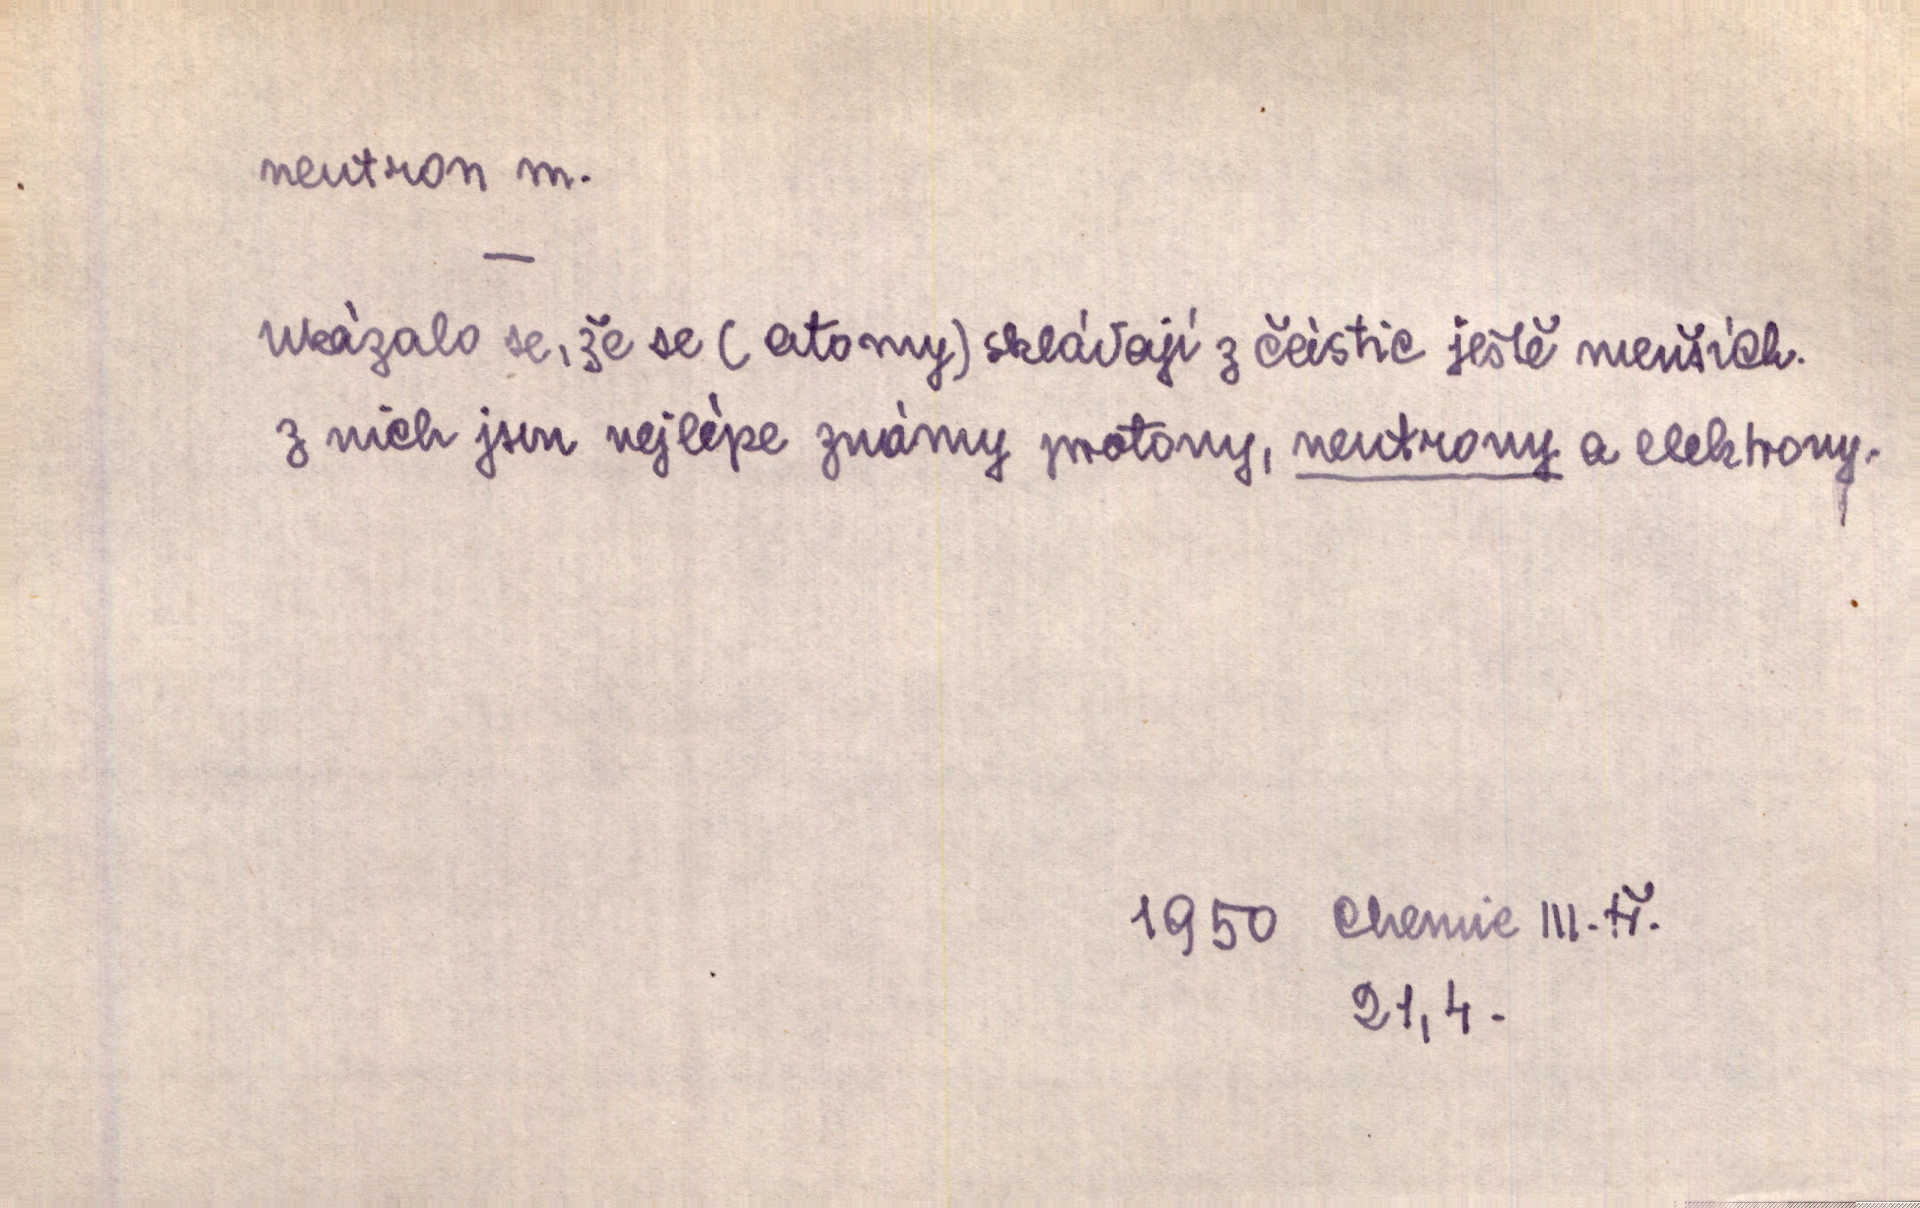 neutron m.
—
Ukázalo se, že se (atomy) skládají z částic ještě menších.
z nich jsou nejlépe známy protony, neutrony a elektrony.
1950 Chemie III. tř.
21,4.